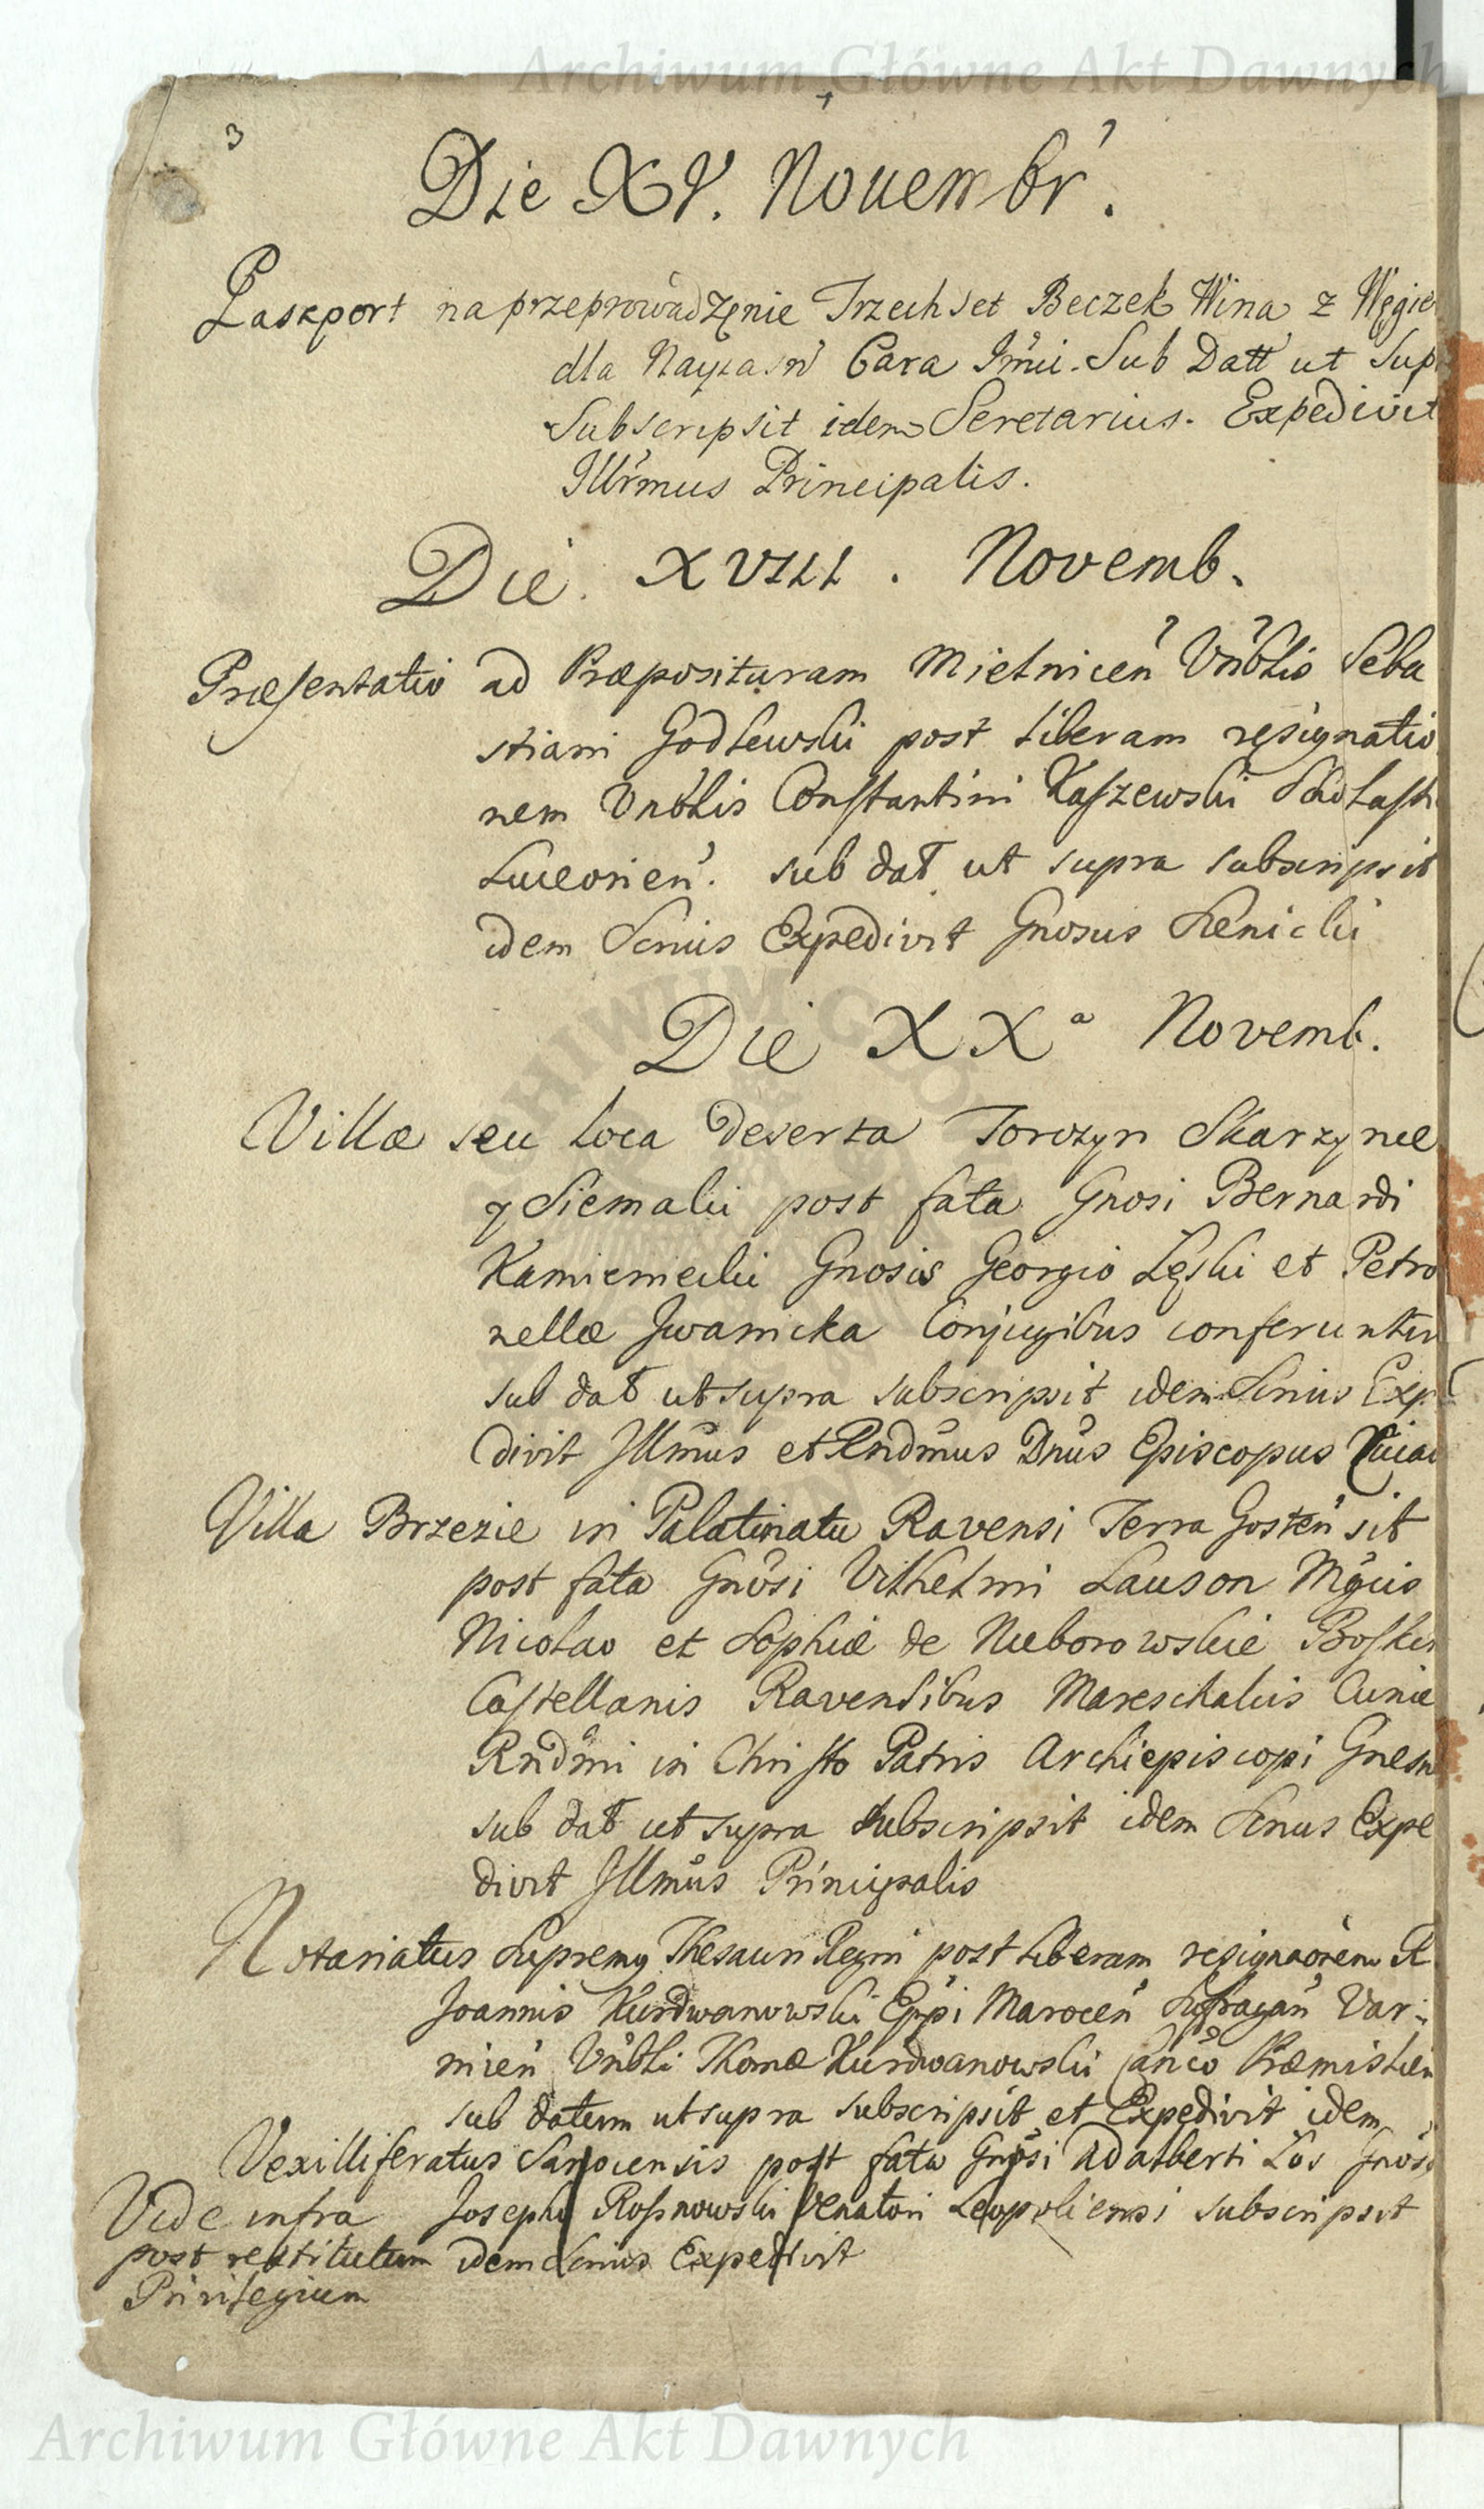 Archiwum Główne Akt Dawnych
3
Die XV. Novembr.
Paszport na przeprowadzęnie Trzechset Beczek Wina z Węgie
dla Nayiasn Cara Imci. Sub Datt ut Sup
Subscripsit idem Seretarius. Expedivit
Illrmus Principalis.
Die XVIII. Novemb.
Præsentatio ad Præposituram Mielnicen Vnblis Seba
stiani Godlewski post liberam resignatio
nem Vnblis Constantini Kaszewski Scholast
Luceorien. sub dat ut supra subscripsit
idem Scrius Expedivit Gnosus Sienicki
Die XXa Novemb.
Villæ seu loca deserta Torczyn Skarzynce
y Siemaki post fata Gnosi Bernardi
Kamieniecki Gnosis Georgio Łęski et Petro
nellæ Iwanicka Conjugibus conferuntur
sub dat ut supra subscripsit idem Scrius Exp
divit Illmus et Rndmus Dnus Episcopus
Villa Brzezie in Palatinatu Ravensi Terra Gosten sit
post fata Gnosi Vilhelmi Lauson Mgcis
Nicolao et Sophiæ de Nieborowskie Boski
Castellanis Ravensibus Mareschalcis Curiæ
Rndmi in Christo Patris Archiepiscopi Gnesn
sub dat ut supra subscripsit idem Scrius Expe
divit Illmus Principalis
Notariatus Supremg Thesauri Regni post liberam resignaorem R
Joannis Kurdwanowski Eppi Marocen Sufragan Var
mien Vnbli Thomæ Kurdwanowski Canco Præmislien
sub datum ut supra subscripsit et Expedivit idem
Vexilliferatus Sanocensis post fata Gnosi Adalberti Łos Gnoso
Vide infra Josepho Rosnowski Venatori Leopoliensi subscripsit
post restitutum idem Scrius Expedivit
Privilegium
Archiwum Główne Akt Dawnych